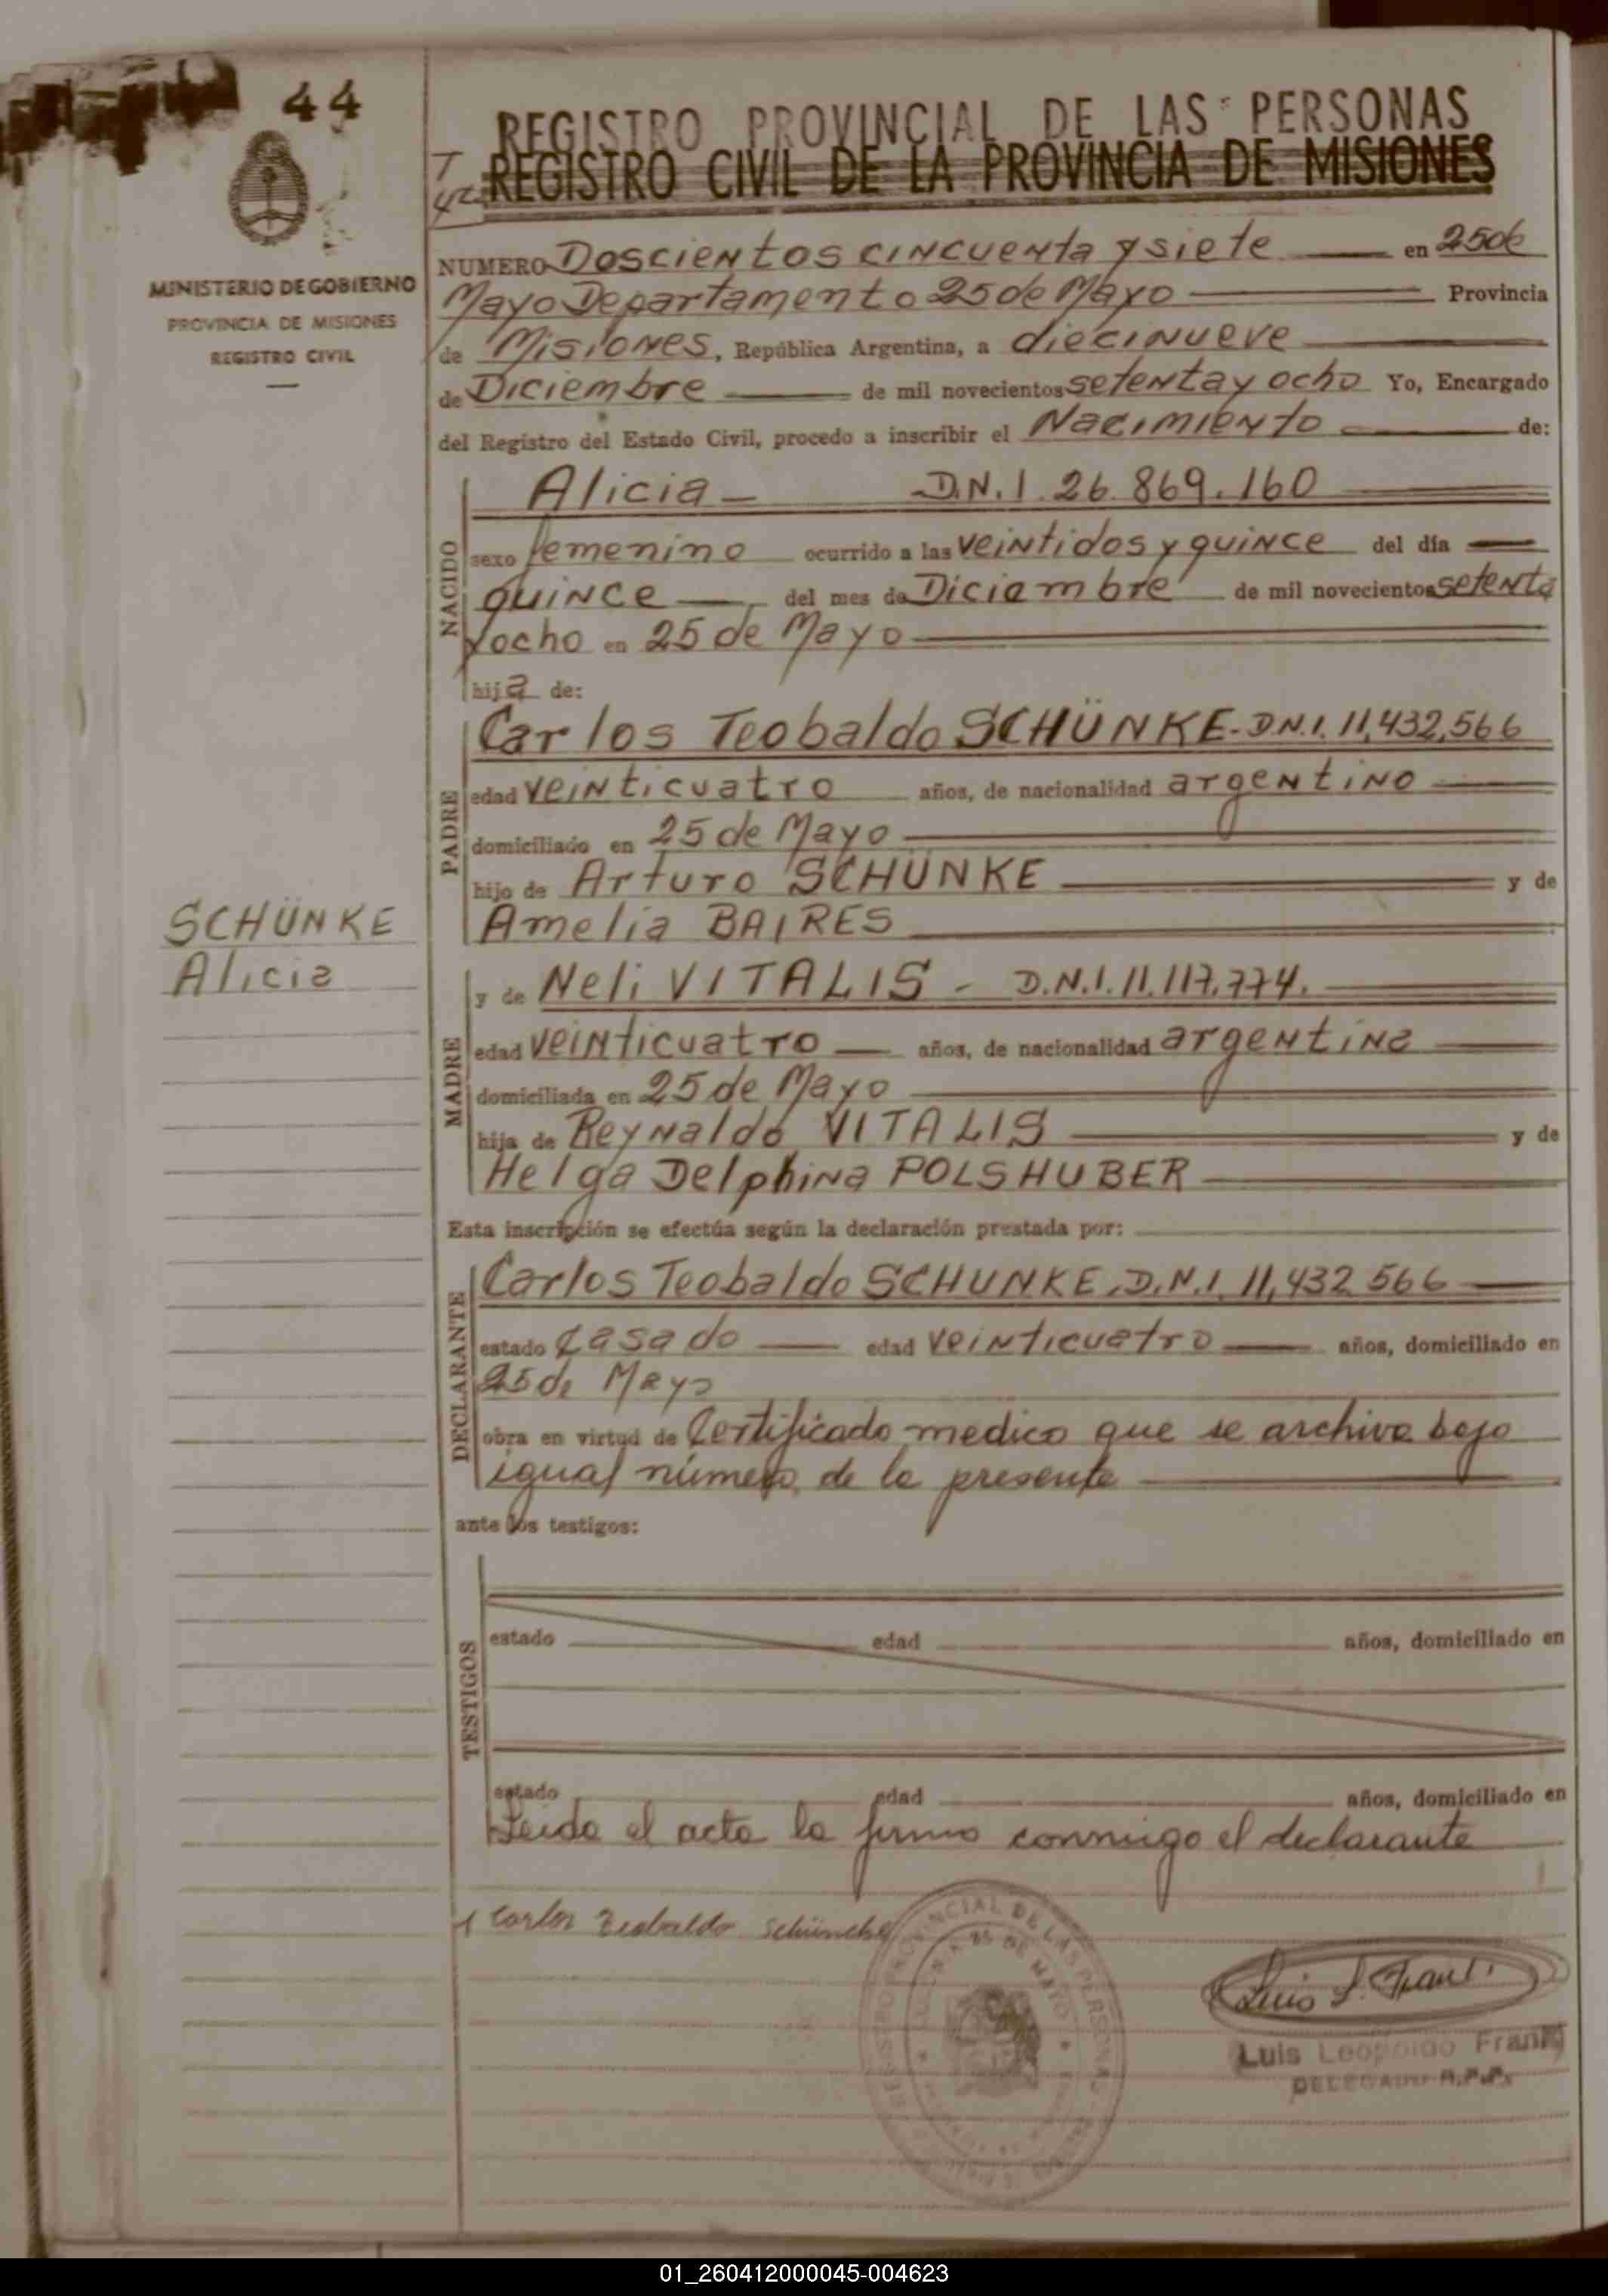 44
MINISTERIO DE GOBIERNO
PROVINCIA DE MISIONES
REGISTRO CIVIL
SCHÜNKE
Alicia
REGISTRO PROVINCIAL DE LAS PERSONAS
T
42
REGISTRO CIVIL DE LA PROVINCIA DE MISIONES
NUMERO Doscientos cincuenta y siete en 25 de
Mayo Departamento 25 de Mayo Provincia
de Misiones, República Argentina, a diecinueve
de Diciembre de mil novecientos setenta y ocho Yo, Encargado
del Registro del Estado Civil, procedo a inscribir el Nacimiento de:
NACIDO
Alicia - D.N.I. 26.869.160
sexo femenino ocurrido a las veintidos y quince del día
quince del mes de Diciembre de mil novecientos setenta
y ocho en 25 de Mayo
hija de:
PADRE
Carlos Teobaldo SCHÜNKE - D.N.I. 11,432,566
edad veinticuatro años, de nacionalidad argentino
domiciliado en 25 de Mayo
hijo de Arturo SCHÜNKE y de
Amelia BAIRES
MADRE
y de Neli VITALIS - D.N.I. 11.117.774.
edad veinticuatro años, de nacionalidad argentina
domiciliada en 25 de Mayo
hija de Reynaldo VITALIS y de
Helga Delphina POLSHUBER
Esta inscripción se efectúa según la declaración prestada por:
DECLARANTE
Carlos Teobaldo SCHUNKE. D.N.I. 11,432 566
estado Casado edad veinticuatro años, domiciliado en
25 de Mayo
obra en virtud de Certificado medico que se archiva bajo
igual número de la presente
ante los testigos:
TESTIGOS
estado edad años, domiciliado en
estado edad años, domiciliado en
Leida el acta la firma conmigo el declarante
Carlos Teobaldo Schünke
PROVINCIAL DE LAS PERSONAS
25 DE MAYO
Luis L. Frank
Luis Leopoldo Frank
DELEGADO R.P.P.
01_260412000045-004623